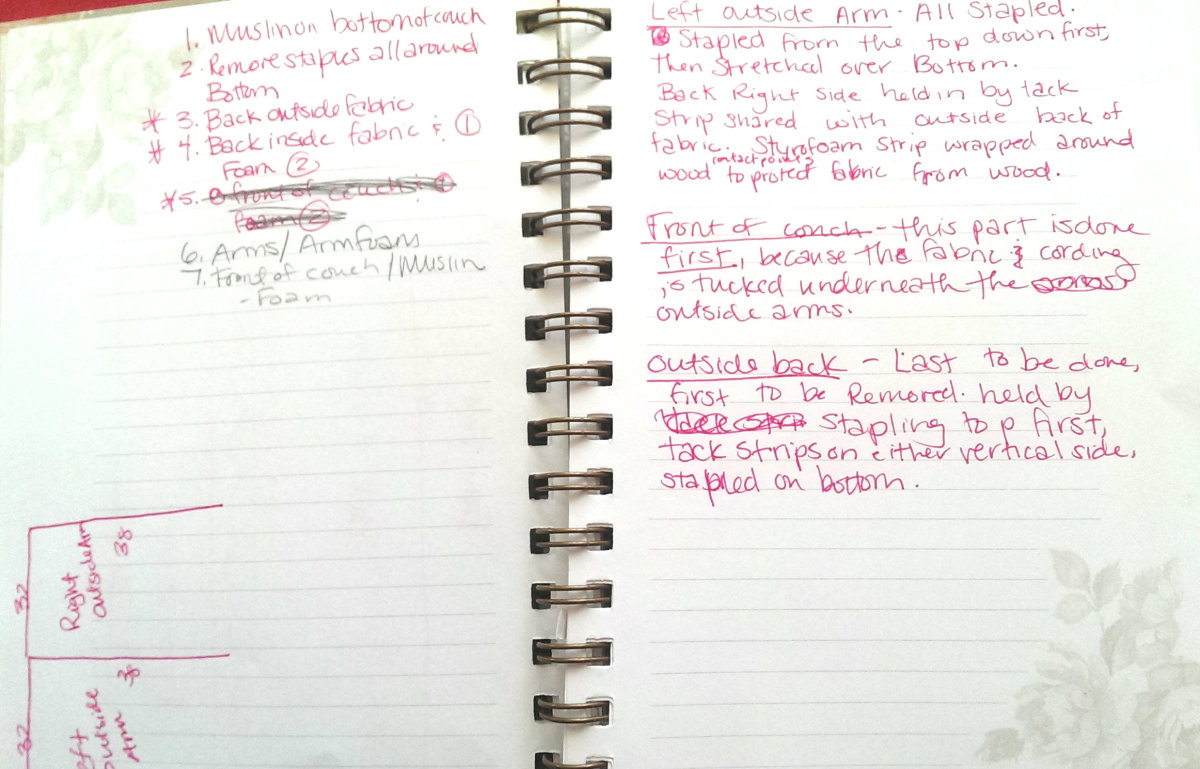 1. Muslin on bottom of couch
2. Remove staples all around
Bottom
* 3. Back outside fabric
* 4. Back inside fabric & ①
Foam ②
*5. front of couch & ①
foam ②
6. Arms/Arm foam
7. Front of couch/Muslin
- Foam
32
Right
outside Arm
38
32
Left
outside
Arm
38
Left outside Arm - All Stapled.
Stapled from the top down first,
then stretched over Bottom.
Back Right side held in by tack
Strip shared with outside back of
fabric. Styrofoam strip wrapped around
wood contact points to protect fabric from wood.
Front of couch - this part is done
first, because the fabric & cording
is tucked underneath the
outside arms.
outside back - Last to be done,
first to be Removed. held by
stapling top first,
tack strips on either vertical side,
stapled on bottom.